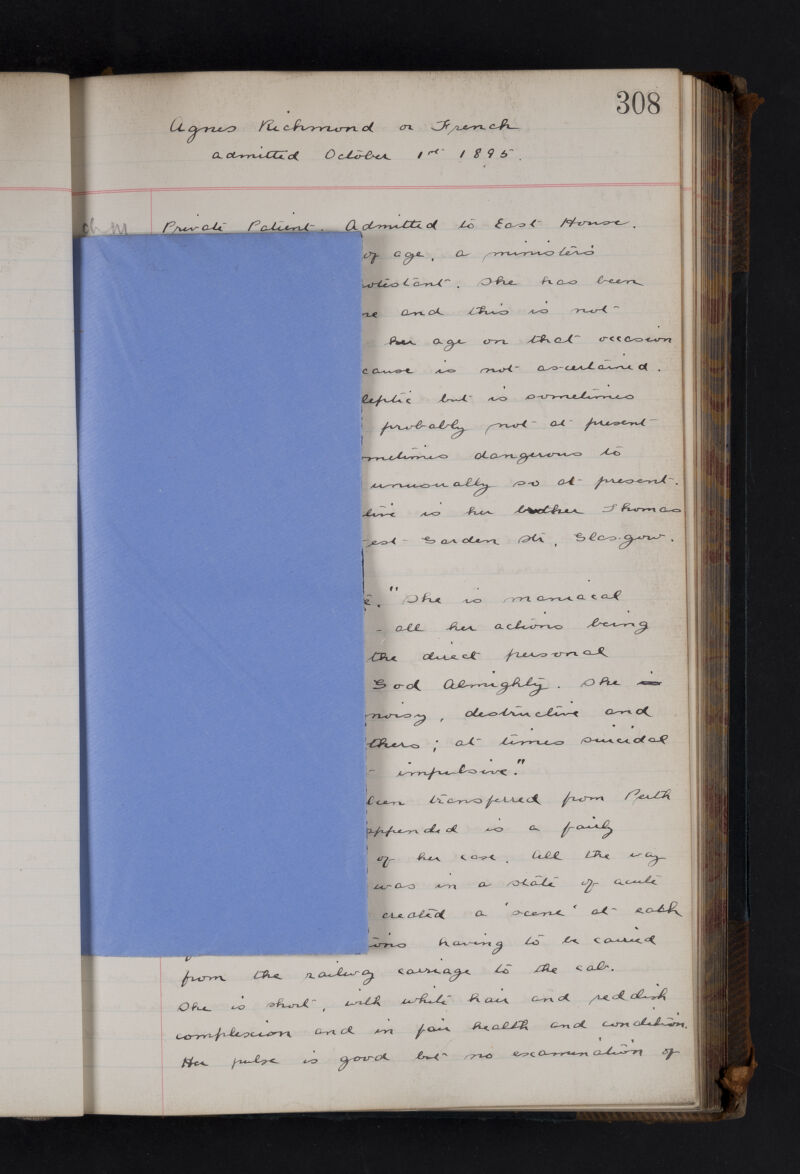 308
Agnes Richmond or French
admitted October 1st 1895.
Private Patient. Admitted to East House.
of age, a minister's
otestant. She has been
and this is not
her age on that occasion
cause is not ascertained.
leptic but is sometimes
probably not at present
metimes dangerous to
unusually so at present.
tive is her brother Thomas
est Garden Str, Glasgow.
"She is maniacal
- all her actions being
the direct personal
God Almighty. She is
noisy, destructive and
thers; at times suicidal
impulsive."
been transferred from Perth
appended is a fairly
of her case. All the way
was in a state of acute
created a 'scene' at each
ions having to be carried
from the railway carriage to the cab.
She is short, with white hair and reddish
complexion and in fair health and condition.
Her pulse is good but no examination of